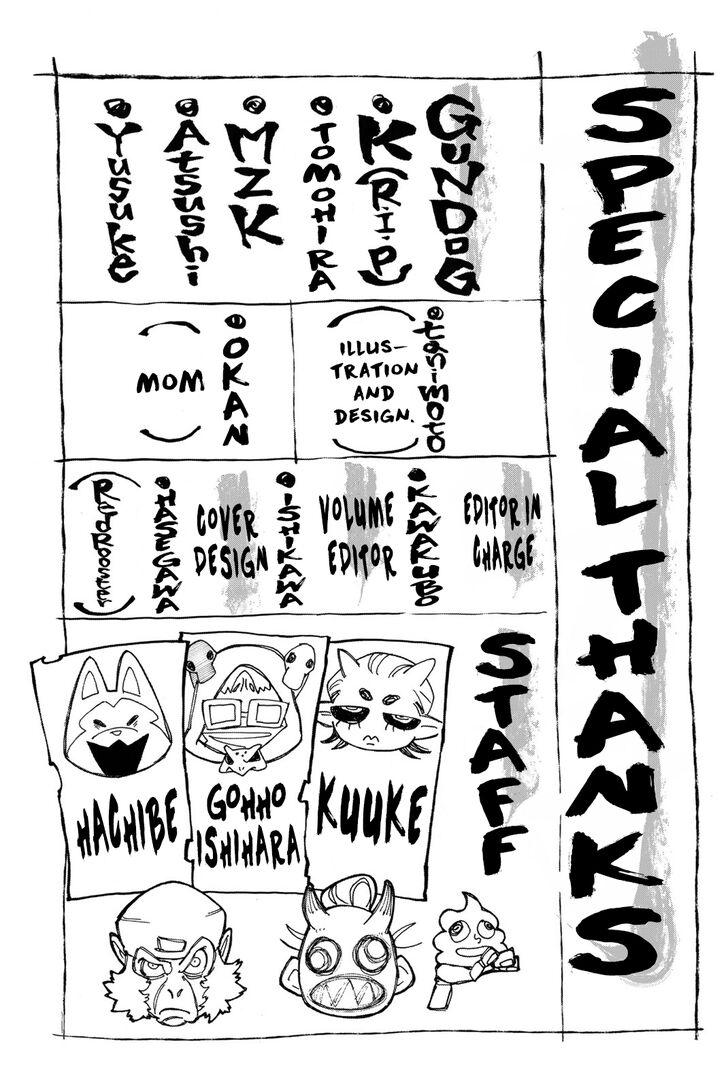 SPECIAL THANKS
GUNDOG
• K (R.I.P)
• TOMOHIRA
• MZK
• Atsushi
• Yusuke
• tanimoto
(ILLUS-
TRATION
AND
DESIGN.)
• OKAN
(MOM)
EDITOR IN
CHARGE
• KAWAKUBO
VOLUME
EDITOR
• ISHIKAWA
COVER
DESIGN
• HASEGAWA
STAFF
KUUKE
GOHHO
ISHIHARA
HACHIBE